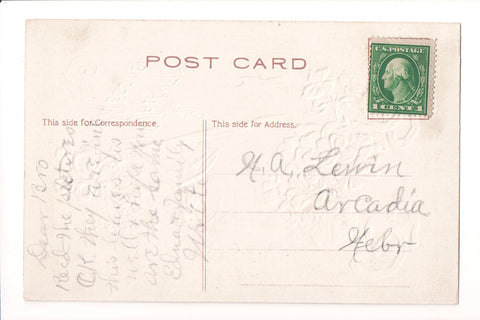 POST CARD
U.S. POSTAGE
1 CENT 1
This side for Correspondence.
This side for Address.
Dear Bro
Recd the pictures
OK they are in
this leaves us
well
are the same
family
H. A. Lewin
Arcadia
Nebr